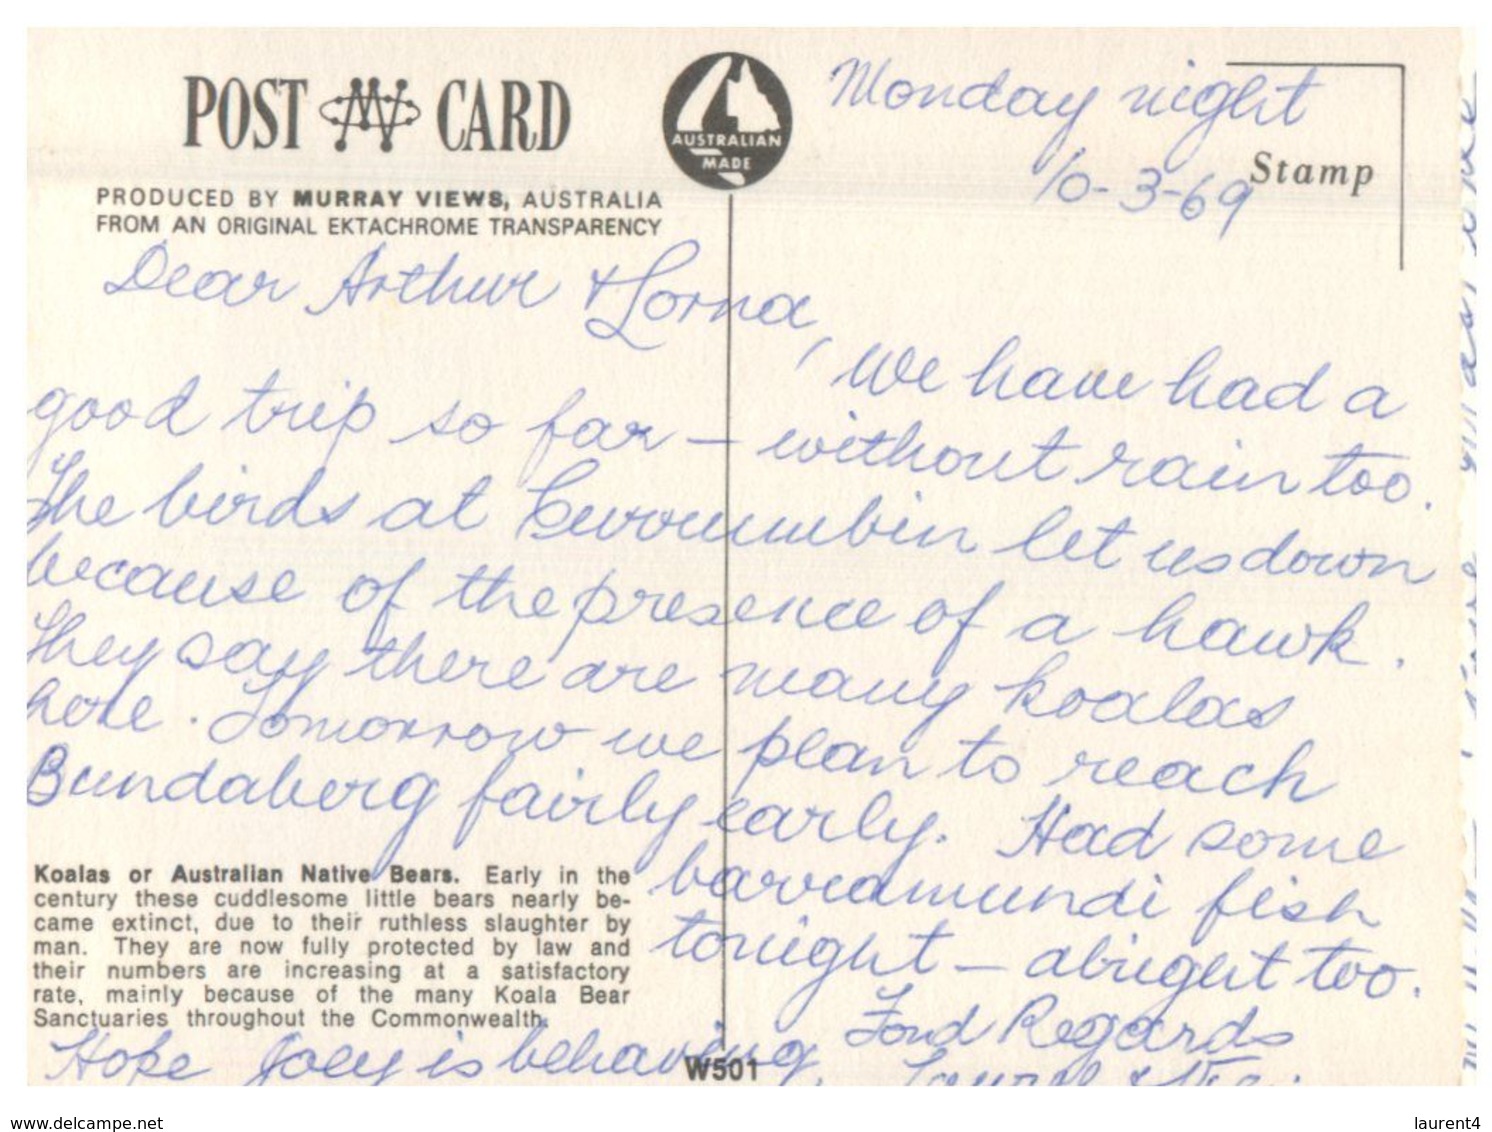 POST CARD
AUSTRALIAN
MADE
PRODUCED BY MURRAY VIEWS, AUSTRALIA
FROM AN ORIGINAL EKTACHROME TRANSPARENCY
Stamp
Monday night
10-3-69
Dear Arthur & Lorna,
We have had a
good trip so far – without rain too.
The birds at Currumbin let us down
because of the presence of a hawk.
They say there are many koalas
here. Tomorrow we plan to reach
Bundaberg fairly early. Had some
barramundi fish
tonight – alright too.
Fond Regards
Hope Joey is behaving.
Koalas or Australian Native Bears. Early in the
century these cuddlesome little bears nearly be-
came extinct, due to their ruthless slaughter by
man. They are now fully protected by law and
their numbers are increasing at a satisfactory
rate, mainly because of the many Koala Bear
Sanctuaries throughout the Commonwealth.
W501
www.delcampe.net
laurent4